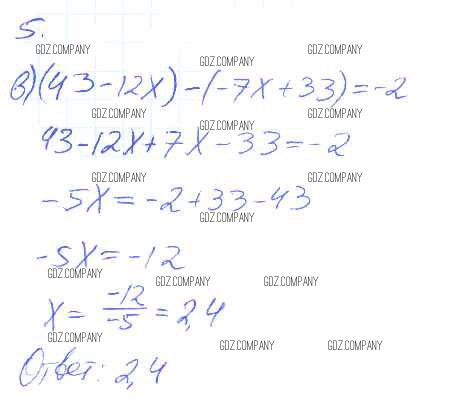 5.
GDZ.COMPANY GDZ.COMPANY GDZ.COMPANY
в) (43-12x) - (-7x+33) = -2
GDZ.COMPANY GDZ.COMPANY GDZ.COMPANY
43-12x+7x-33=-2
GDZ.COMPANY GDZ.COMPANY
-5x=-2+33-43
GDZ.COMPANY
-5x=-12
GDZ.COMPANY GDZ.COMPANY GDZ.COMPANY
x = -12/-5 = 2,4
GDZ.COMPANY GDZ.COMPANY GDZ.COMPANY
Ответ: 2,4